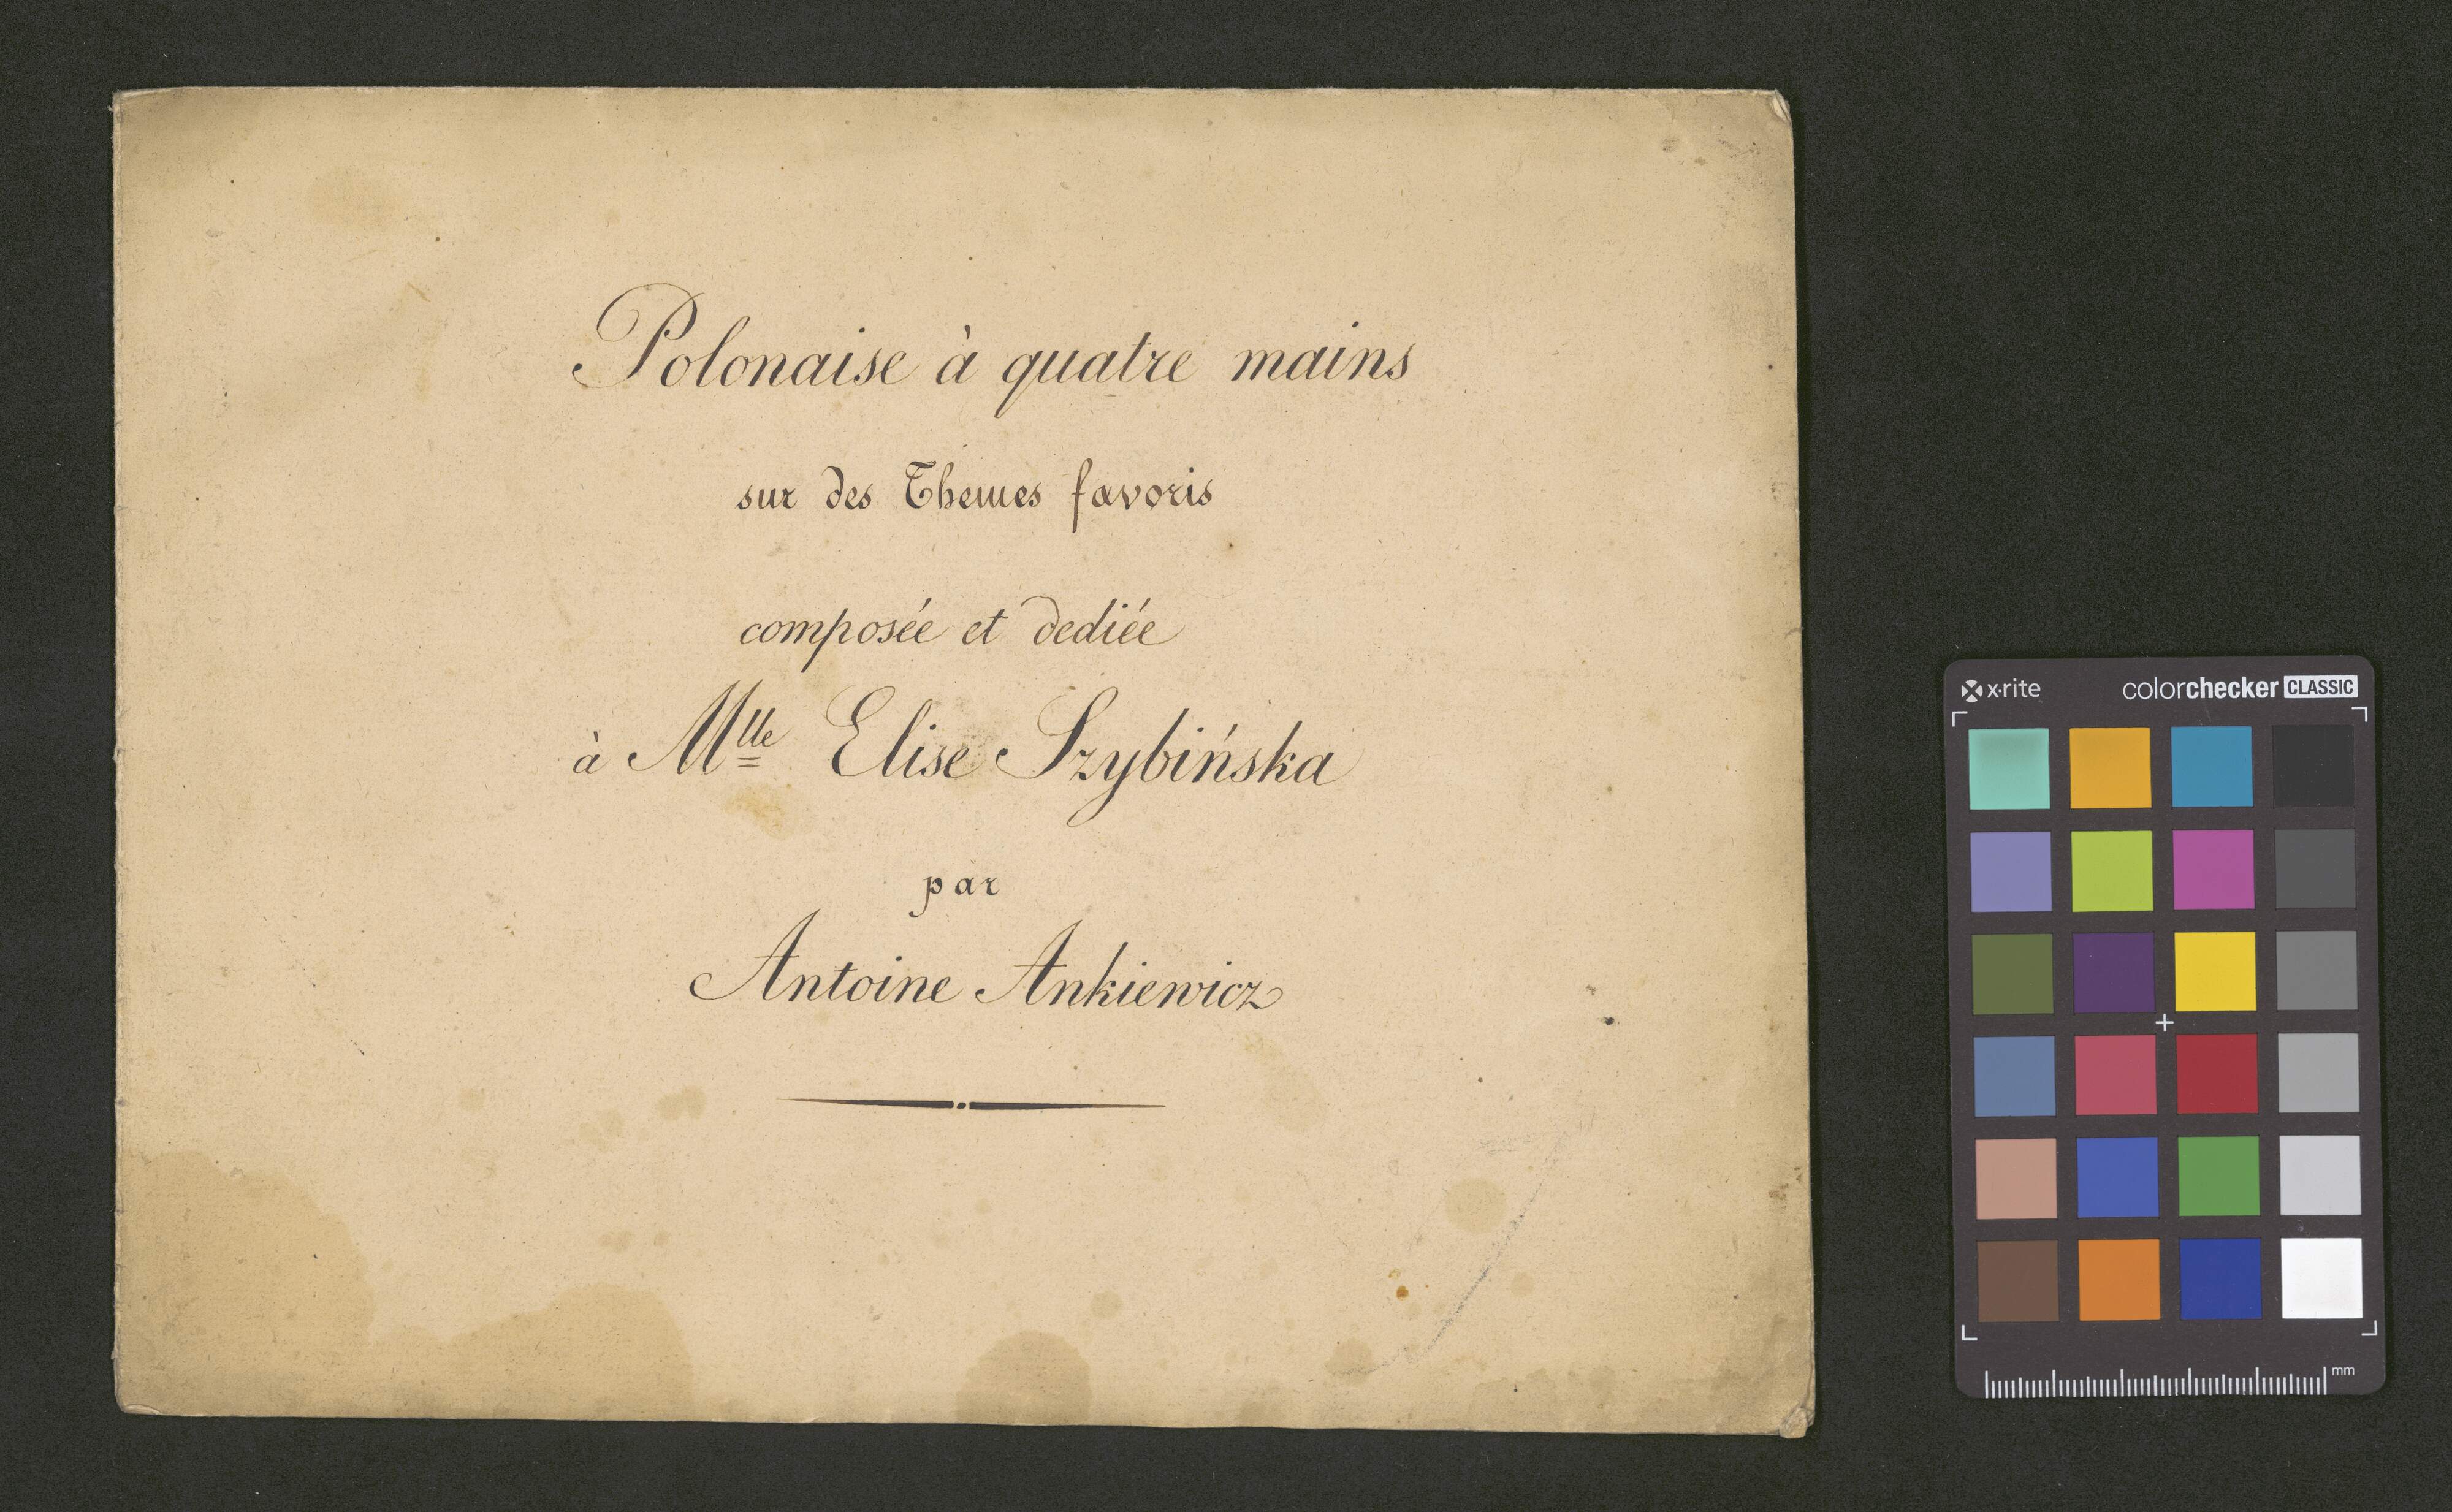 Polonaise à quatre mains
sur des Themes favoris
composée et dediée
à Mlle Elise Szybińska
par
Antoine Ankiewicz
x·rite colorchecker CLASSIC
mm